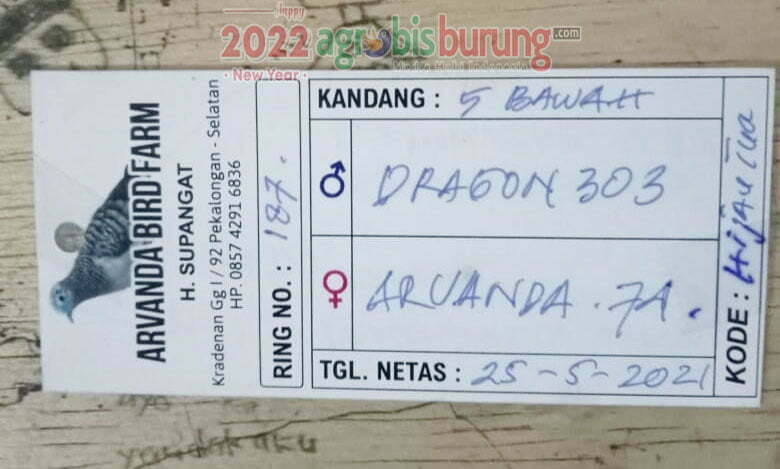 Happy
2022 agrobisburung.com
• New Year •
Media Hobi Indonesia
ARVANDA BIRD FARM
H. SUPANGAT
Kradenan Gg I / 92 Pekalongan - Selatan
HP. 0857 4291 6836
RING NO. : 187.
KANDANG : 5 BAWAH
♂ DRAGON 303
♀ ARVANDA . 7A .
TGL. NETAS : 25-5-2021
KODE : Hijau Tua